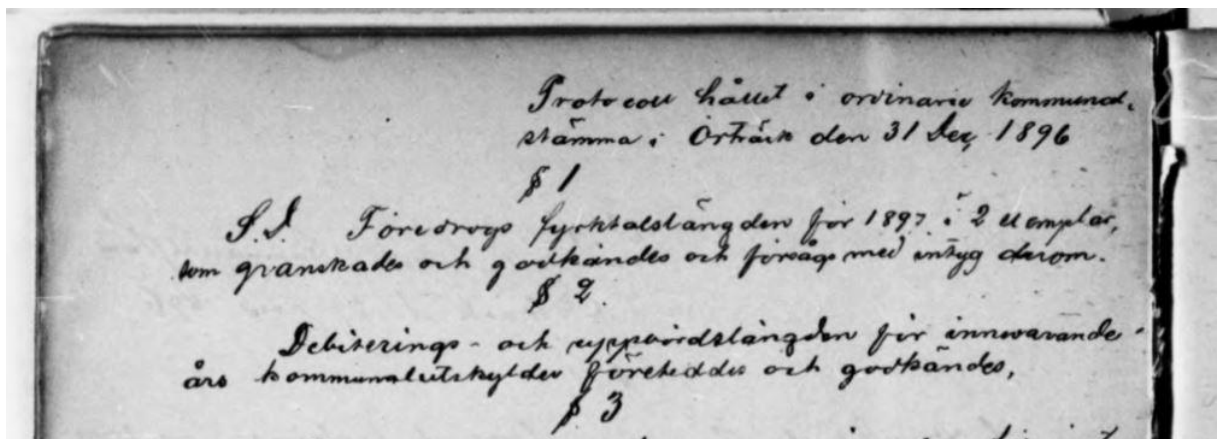 Protocoll hållet i ordinarie kommunal-
stämma i Örträsk den 31 Dec, 1896
§ 1
S. D. Föredrogs fyrktalslängden för 1897 i 2 exemplar,
som granskades och godkändes och försågs med intyg derom.
§ 2.
Debiterings- och uppbördslängden för innevarande
års kommunalutskylder företeddes och godkändes,
§ 3